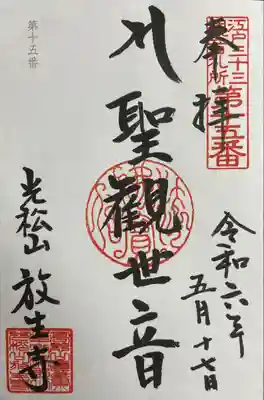 江戸三十三
観音札所
第十五番
奉拝
令和六年
五月十七日
聖觀世音
第十五番
光松山
放生寺